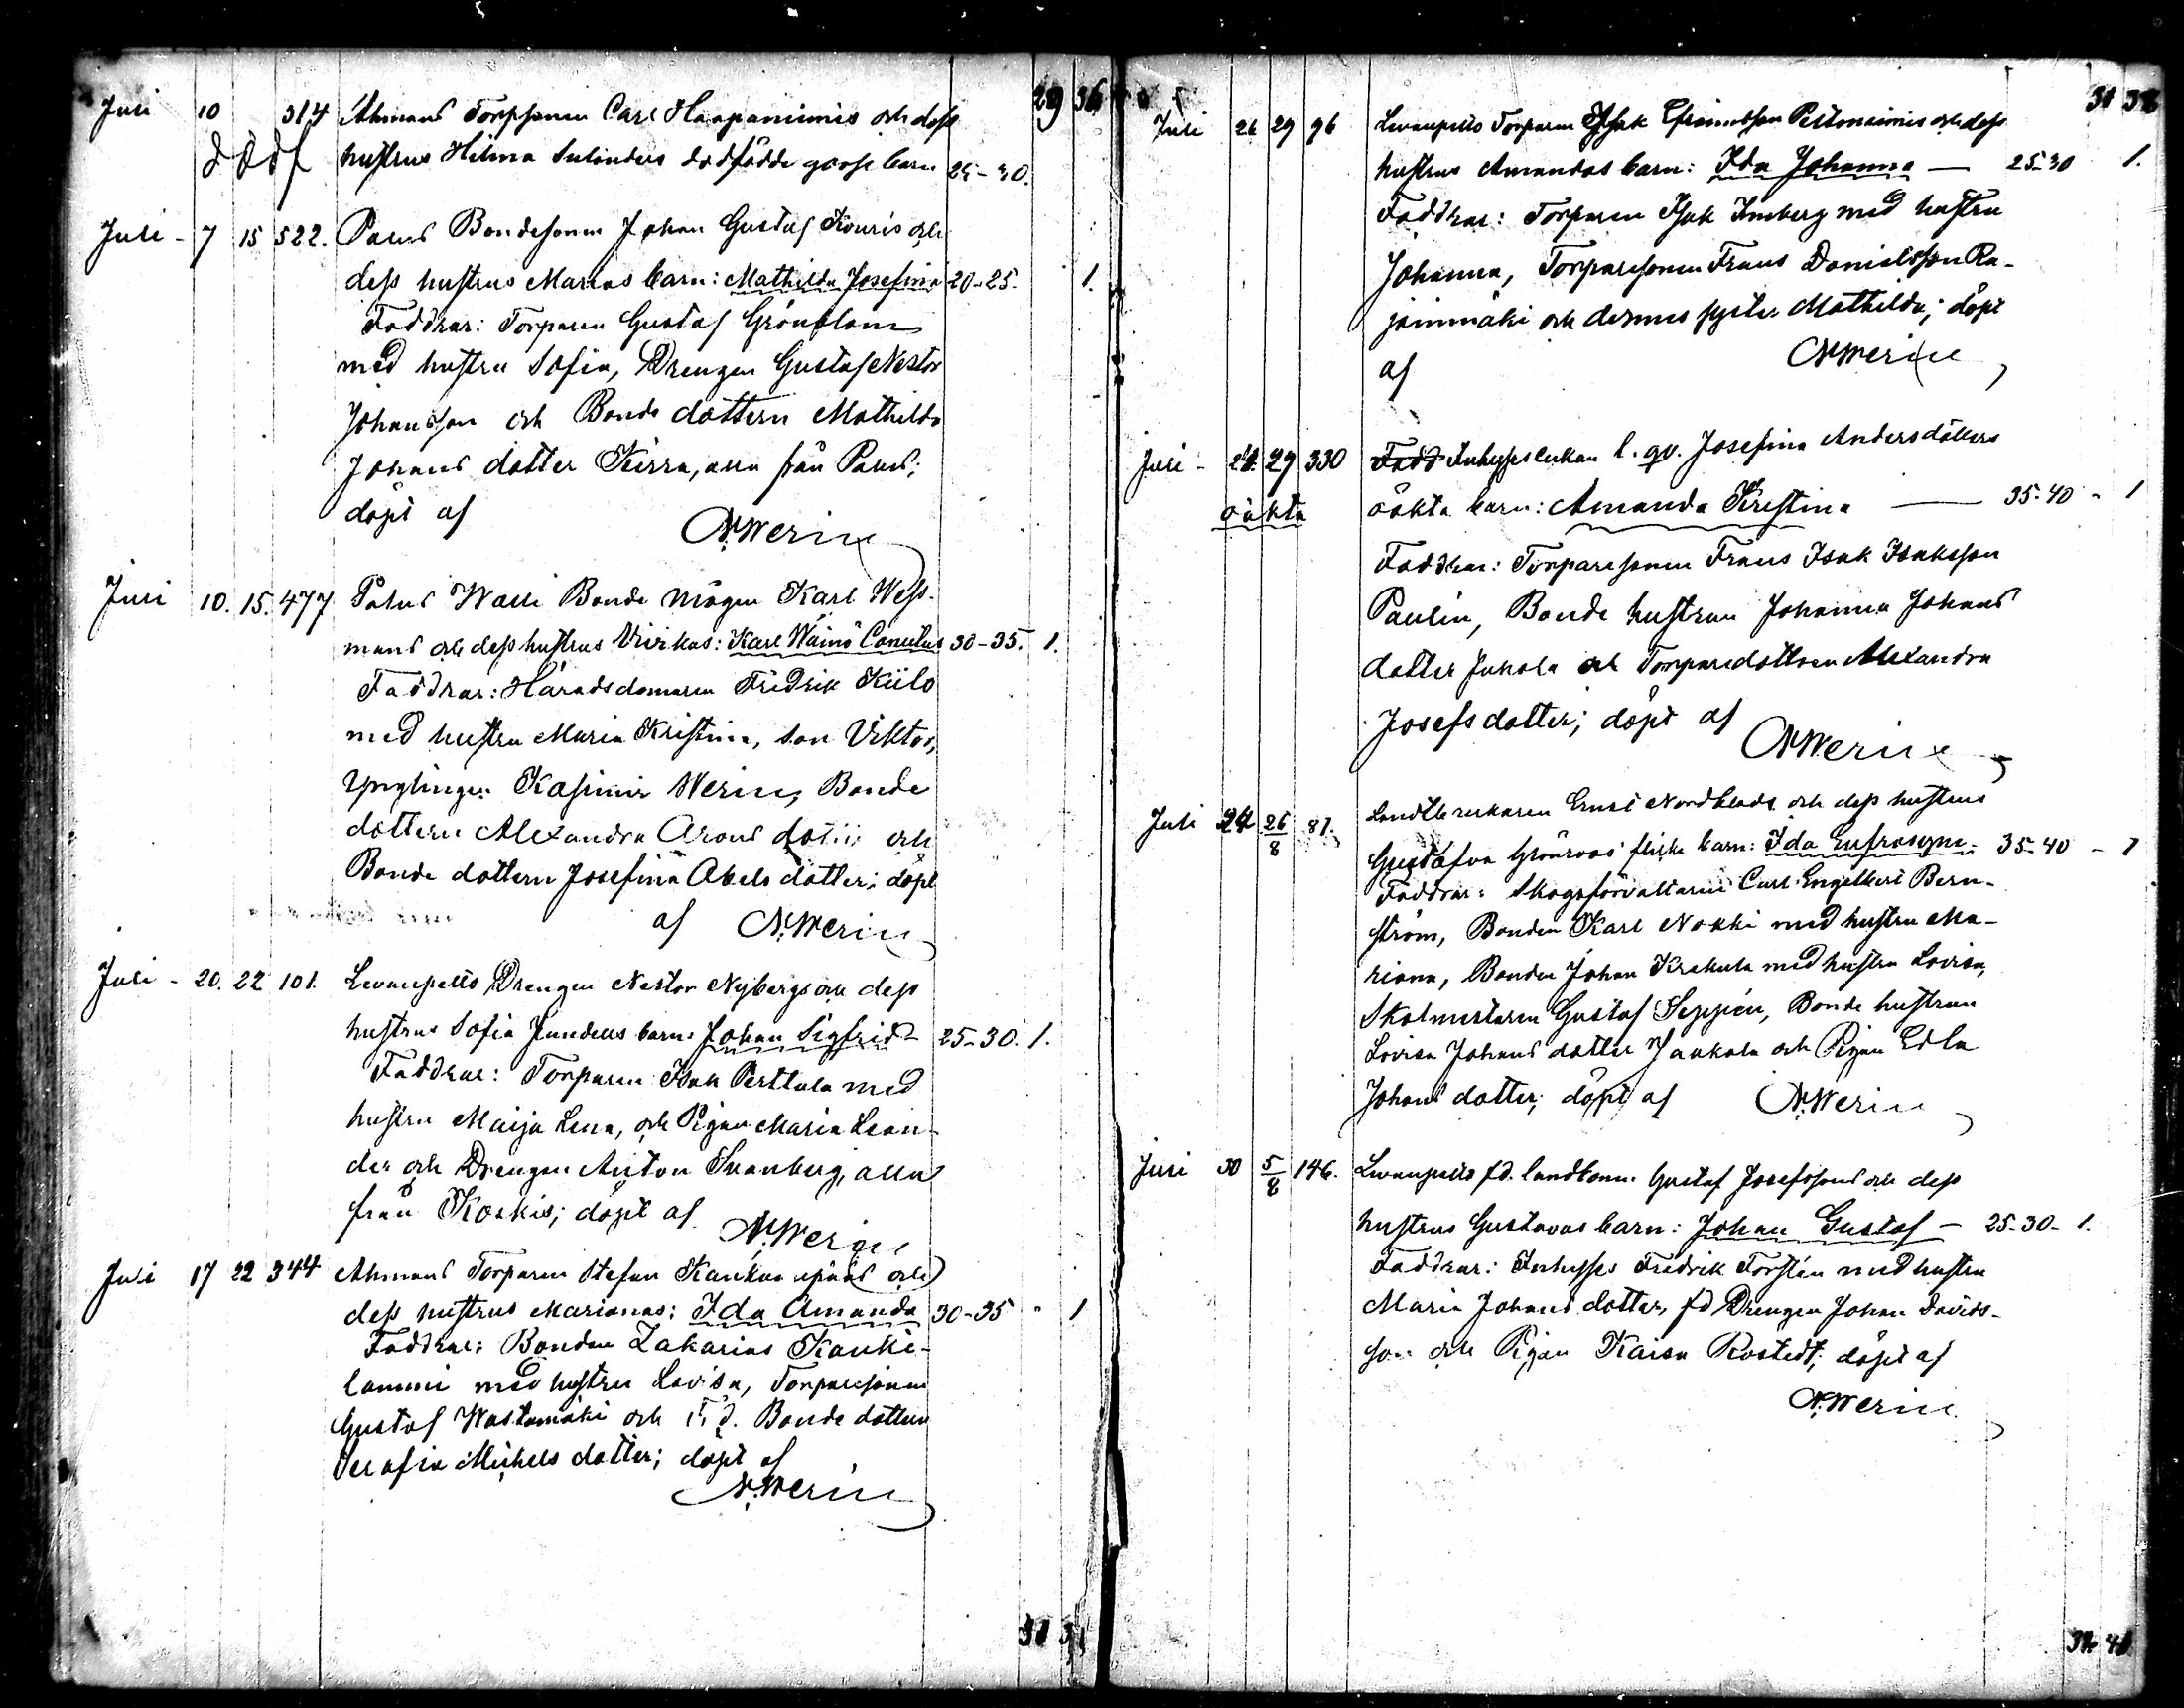 29 36
Juli 10 314 Ahmans Torpsonen Carl Haapaniemis och dess
d död f hustrus Hilma Sulinders dödfödde gosse barn 25-30.
Juli - 7 15 522. Palus Bondesonen Johan Gustaf Kouris och
dess hustrus Marias barn: Mathilda Josefina 20-25. 1.
Faddrar: Torparen Gustaf Grönblom
med hustru Sofia, Drengen Gustaf Nestor
Johansson och Bonde dottern Mathilda
Johans dotter Kirra, alla från Palus;
döpt af
N. Werin
Juli 10. 15. 477 Palus Walli Bonde mågen Karl Wess-
mans och dess hustrus Virikas: Karl Wäinö Conutus 30-35. 1.
Faddrar: Häradsdomaren Fredrik Kiilo
med hustru Maria Kristina, son Viktor,
Ynglingen Kasimir Werin, Bonde
dottern Alexandra Arons dotter och
Bonde dottern Josefina Abels dotter; döpt
af N. Werin
Juli - 20. 22 101. Levanpelts Drengen Nestor Nybergs och dess
hustrus Sofia Jundells barn: Johan Sigfrid - 25-30. 1.
Faddrar: Torparen Isak Perttula med
hustru Maija Lena, och Pigan Maria Lean-
der och Drengen Anton Svanberg, alla
från Koskis; döpt af
N. Werin
Juli 17 22 344 Ahmans Torparen Stefan och
dess hustrus Marianas: Ida Amanda 30-35 " 1
Faddrar: Bonden Zakarias Kauki-
lammi med hustru Lovisa, Torparesonen
Gustaf Wastamäki och F.d. Bonde dottern
Serafia Michels dotter; döpt af
N. Werin
31 38
Juli 26 29 96 Levanpelts Torparen Isak Efraimsson Peltoniemis och dess
hustrus Amandas barn: Ida Johanna - 25-30 1.
Faddrar: Torparen Isak Imberg med hustru
Johanna, Torparesonen Frans Danielsson Ra-
jainmäki och dennes syster Mathilda; döpt
af N Werin
Juli - 24. 29 330 Fadd Inhysesenkan l. qv. Josefina Andersdotters
oäkta oäkta barn: Amanda Kristina - 35-40 - 1
Faddrar: Torparesonen Frans Isak Isaksson
Paulin, Bonde hustrun Johanna Johans
dotter Jukola och Torparedottern Alexandra
Josefs dotter; döpt af
N Werin
Juli 24 26/8 81. Landtbrukaren Ernst Nordblads och dess hustrus
Gustafva Grönroos' flicke barn: Ida Eufrosyne - 35-40 - 1
Faddrar: Skogsförvaltaren Carl Engelbert Bern-
ström, Bonden Karl Nokki med hustru Ma-
riana, Bonden Johan Krekula med hustru Lovisa,
Skolmestaren Gustaf Seppien, Bonde hustrun
Lovisa Johans dotter Jaakola och Pigan Edla
Johans dotter; döpt af N. Werin
Juli 30 5/8 146. Levanpelts f.d. landbonn. Gustaf Josefssons och dess
hustrus Gustavas barn: Johan Gustaf - 25-30- 1.
Faddrar: Inhyses Fredrik Forstén med hustru
Maria Johans dotter, fd Drengen Johan Davids-
son och Pigan Kaisa Rostedt; döpt af
N. Werin